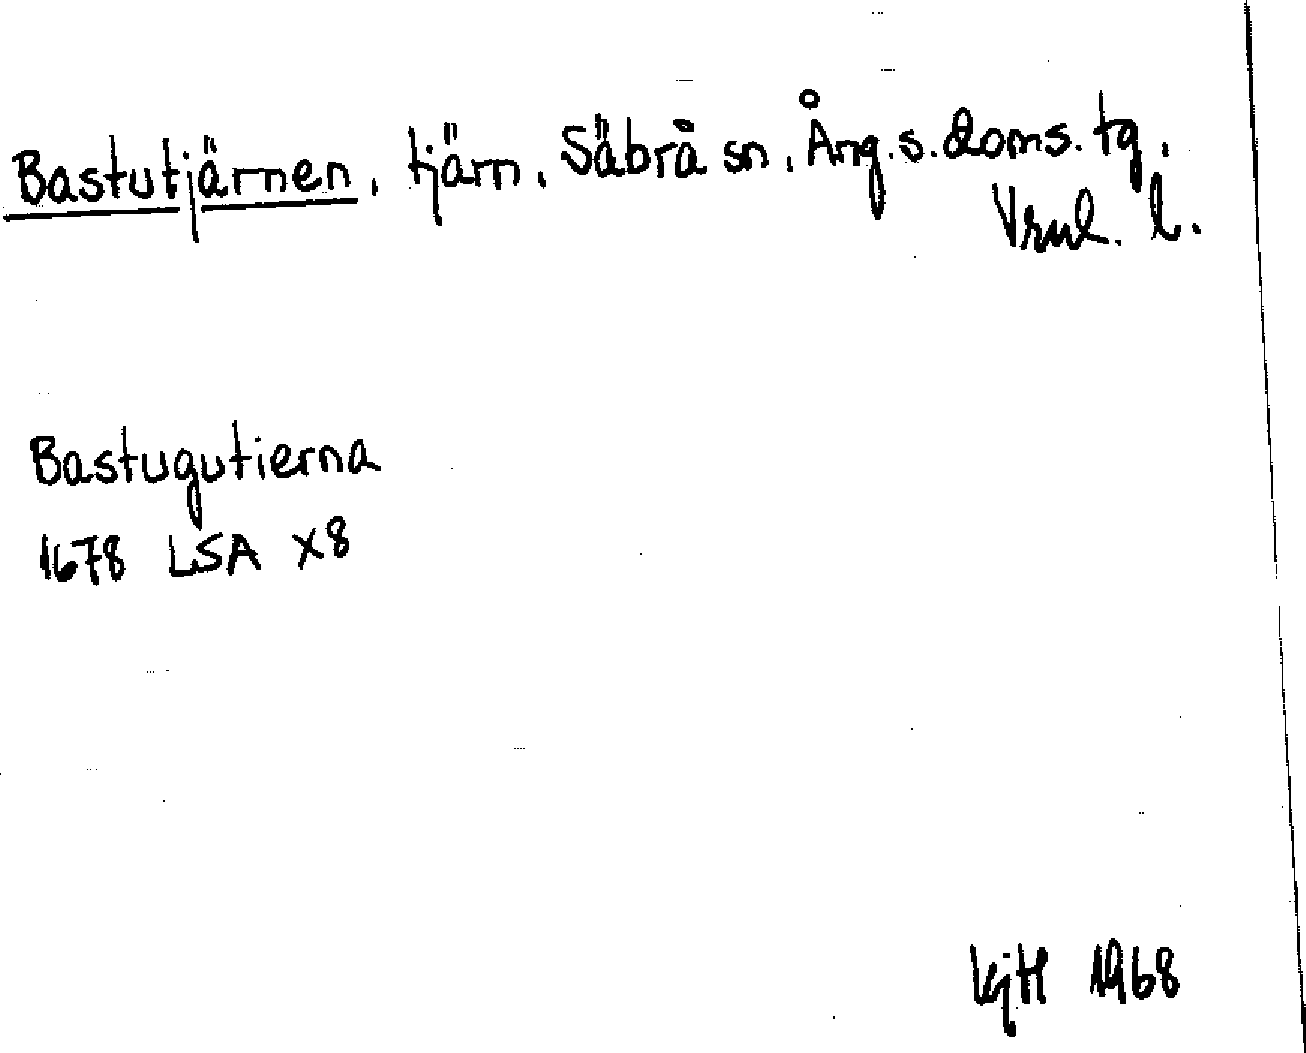 Bastutjärnen, tjärn, Säbrå sn, Ång.s. doms. tg,
Vrnl. l.
Bastugutierna
1678 LSA X8
KjH 1968